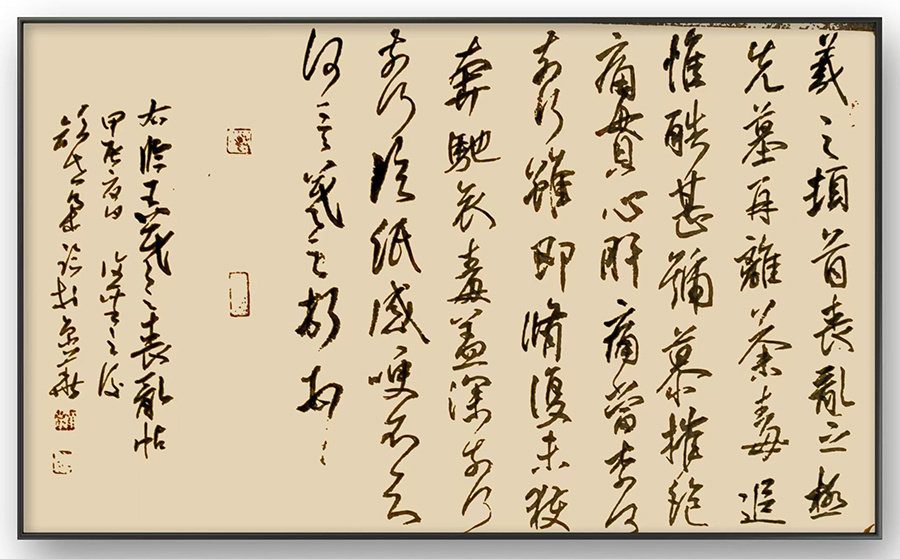 羲之頓首喪亂之極
先墓再離荼毒追
惟酷甚號慕摧絕
痛貫心肝痛當奈何
奈何雖即脩復未獲
奔馳哀毒益深奈何
奈何臨紙感哽不知
何言羲之頓首頓首
右臨王羲之喪亂帖
甲辰夏日